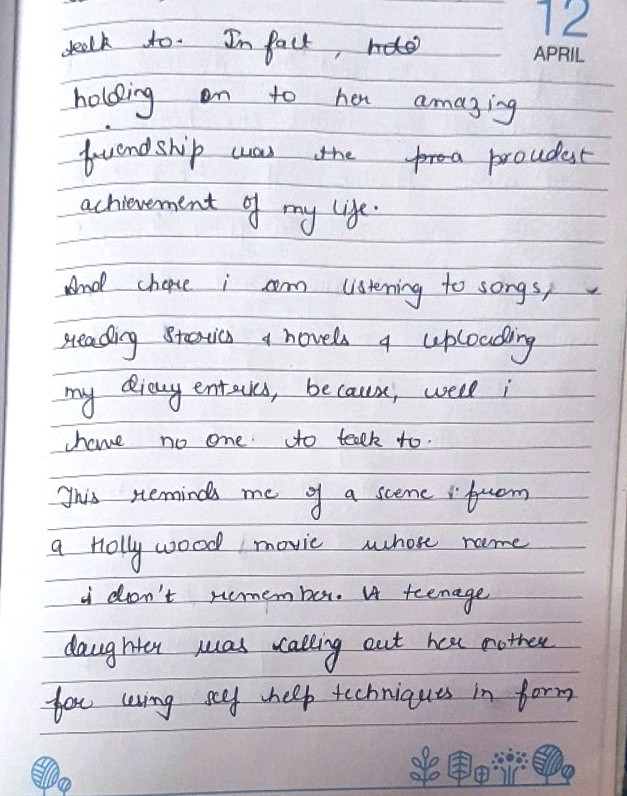 12
APRIL
talk to. In fact,
holding on to her amazing
friendship was the proa proudest
achievement of my life.
And here i am listening to songs,
reading stories & novels & uploading
my diary entries, because, well i
have no one to talk to.
This reminds me of a scene from
a Hollywood movie whose name
i don't remember. A teenage
daughter was calling out her mother
for using self help techniques in form